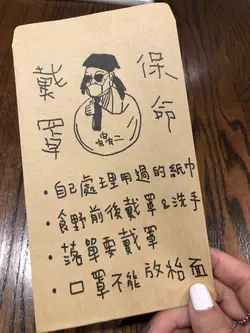 戴罩
保命
・自己處理用過的紙巾
・食野前後戴罩&洗手
・落單要戴罩
・口罩不能放枱面